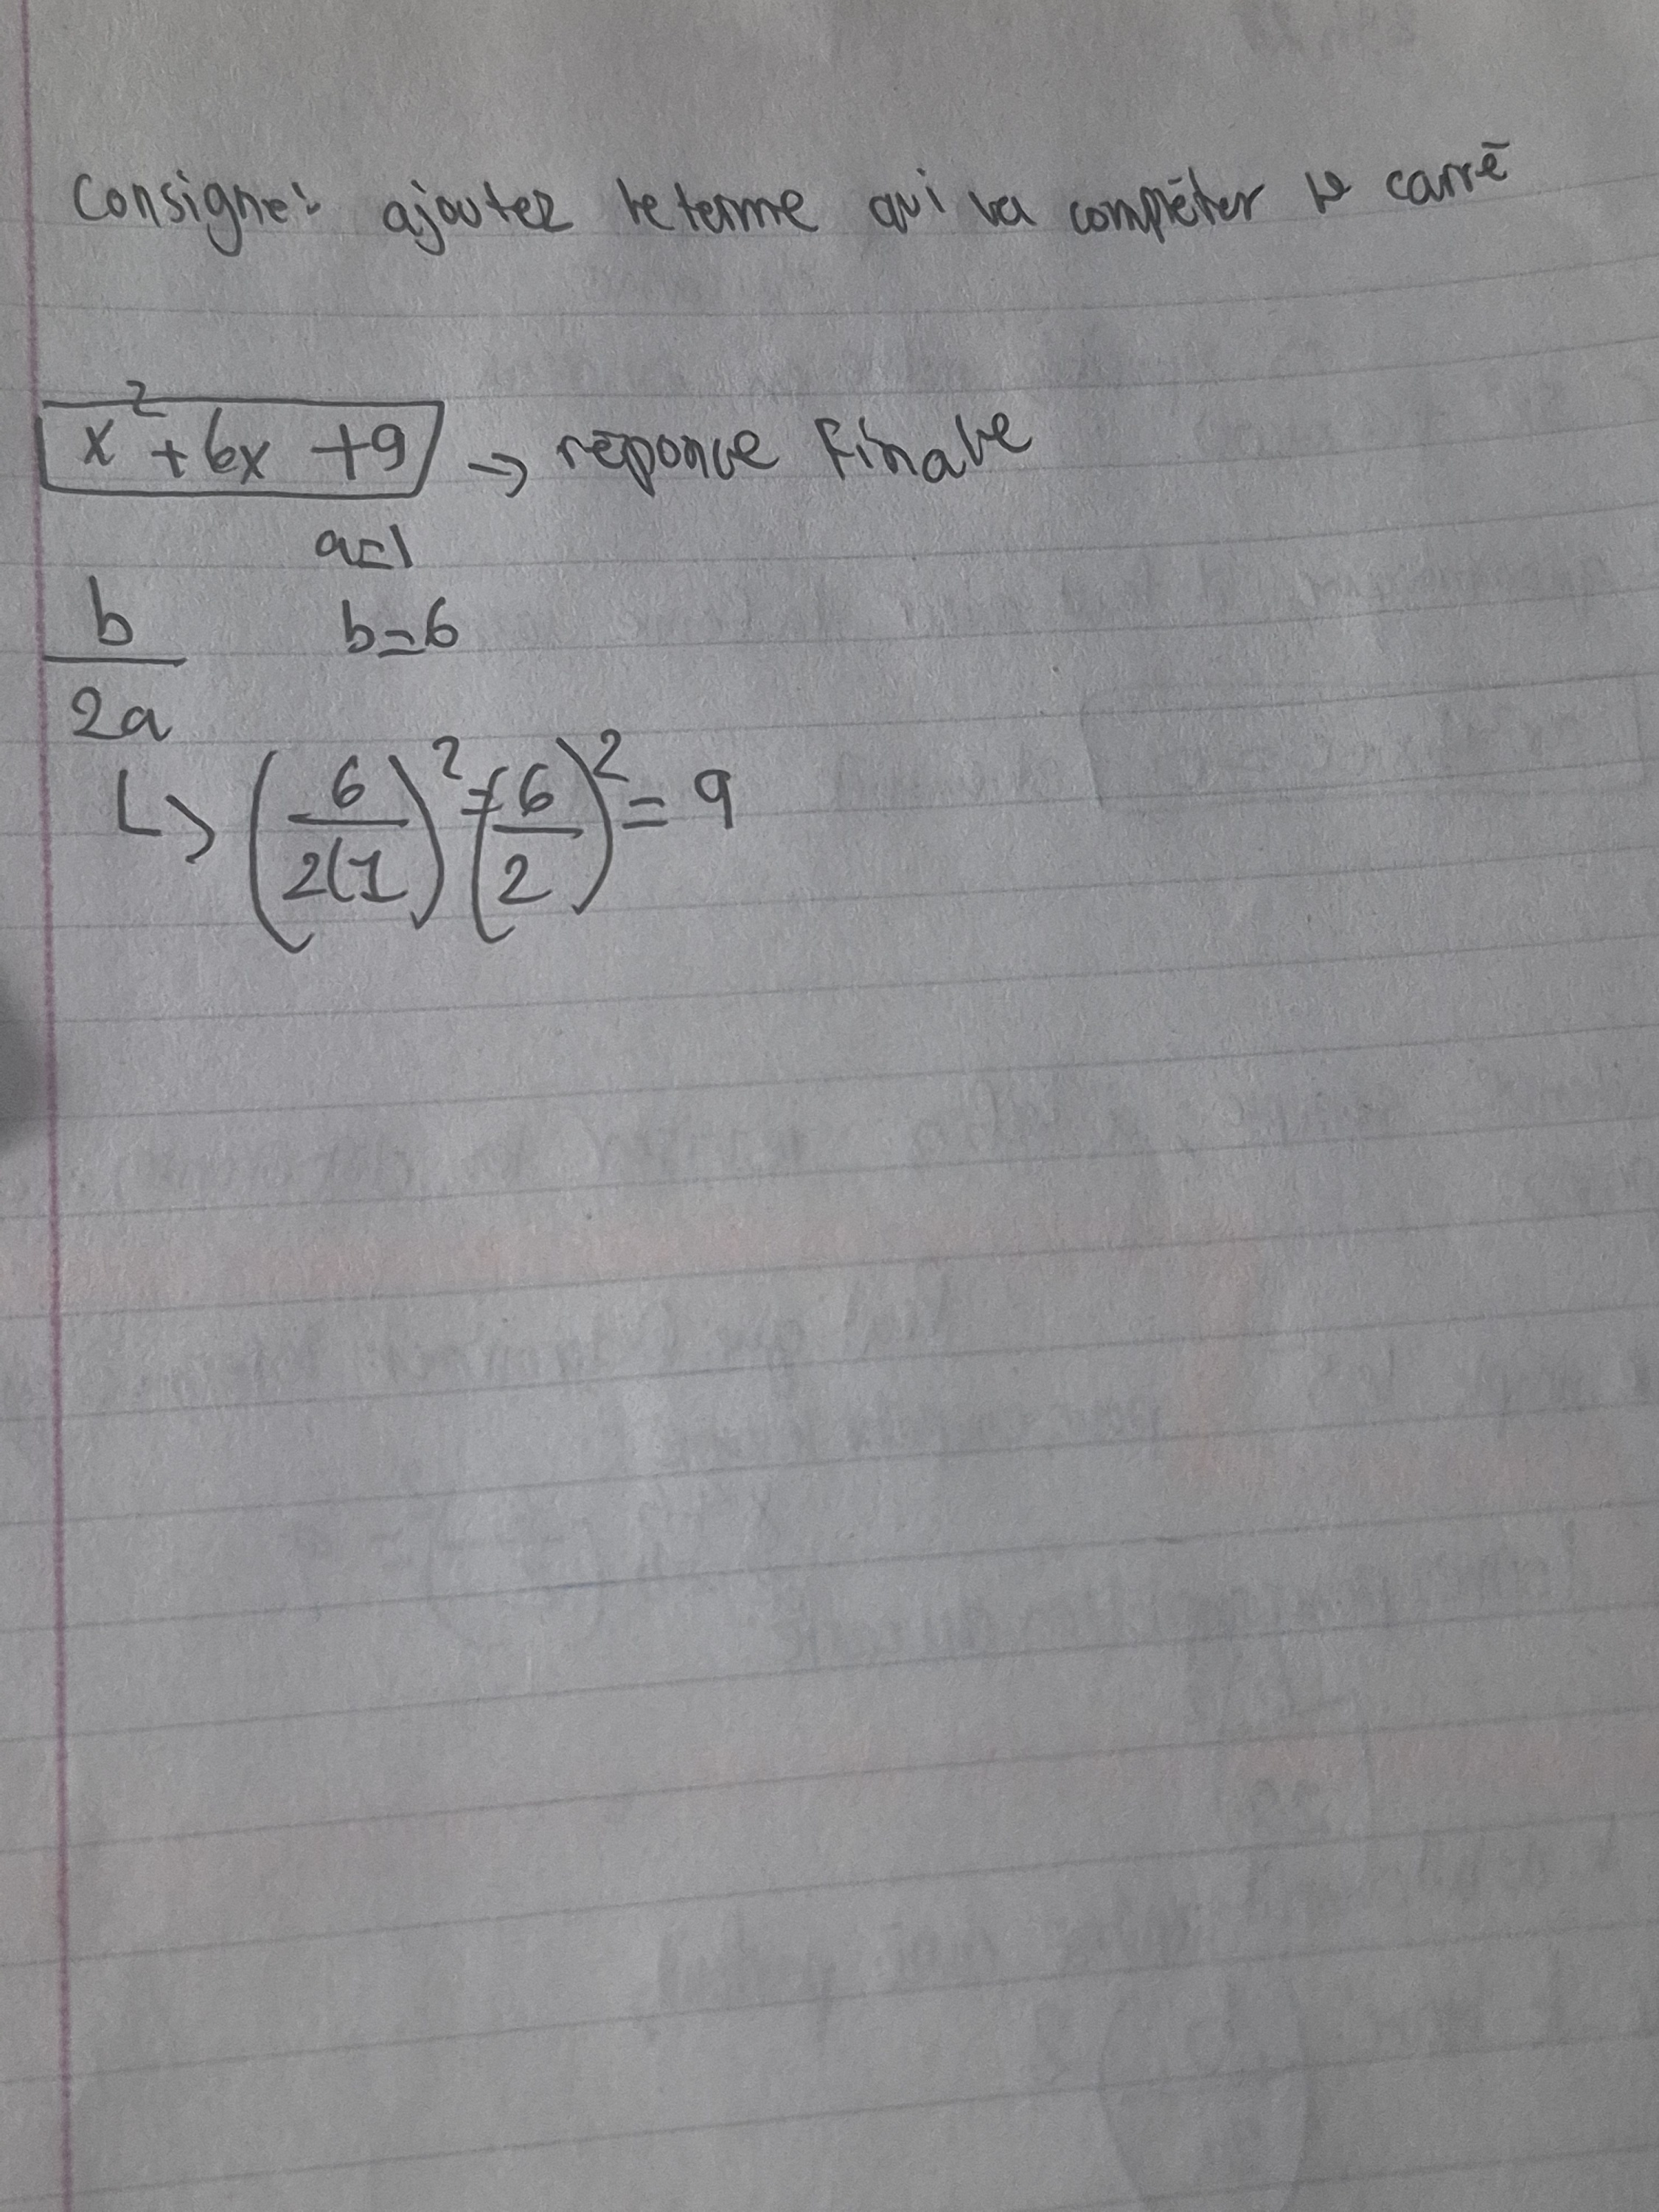 Consigne: ajoutez le terme qui va compléter le carré
x² + 6x + 9 → réponce Finale
a=1
b/2a b=6
↳ (6/2(1)² = (6/2)² = 9